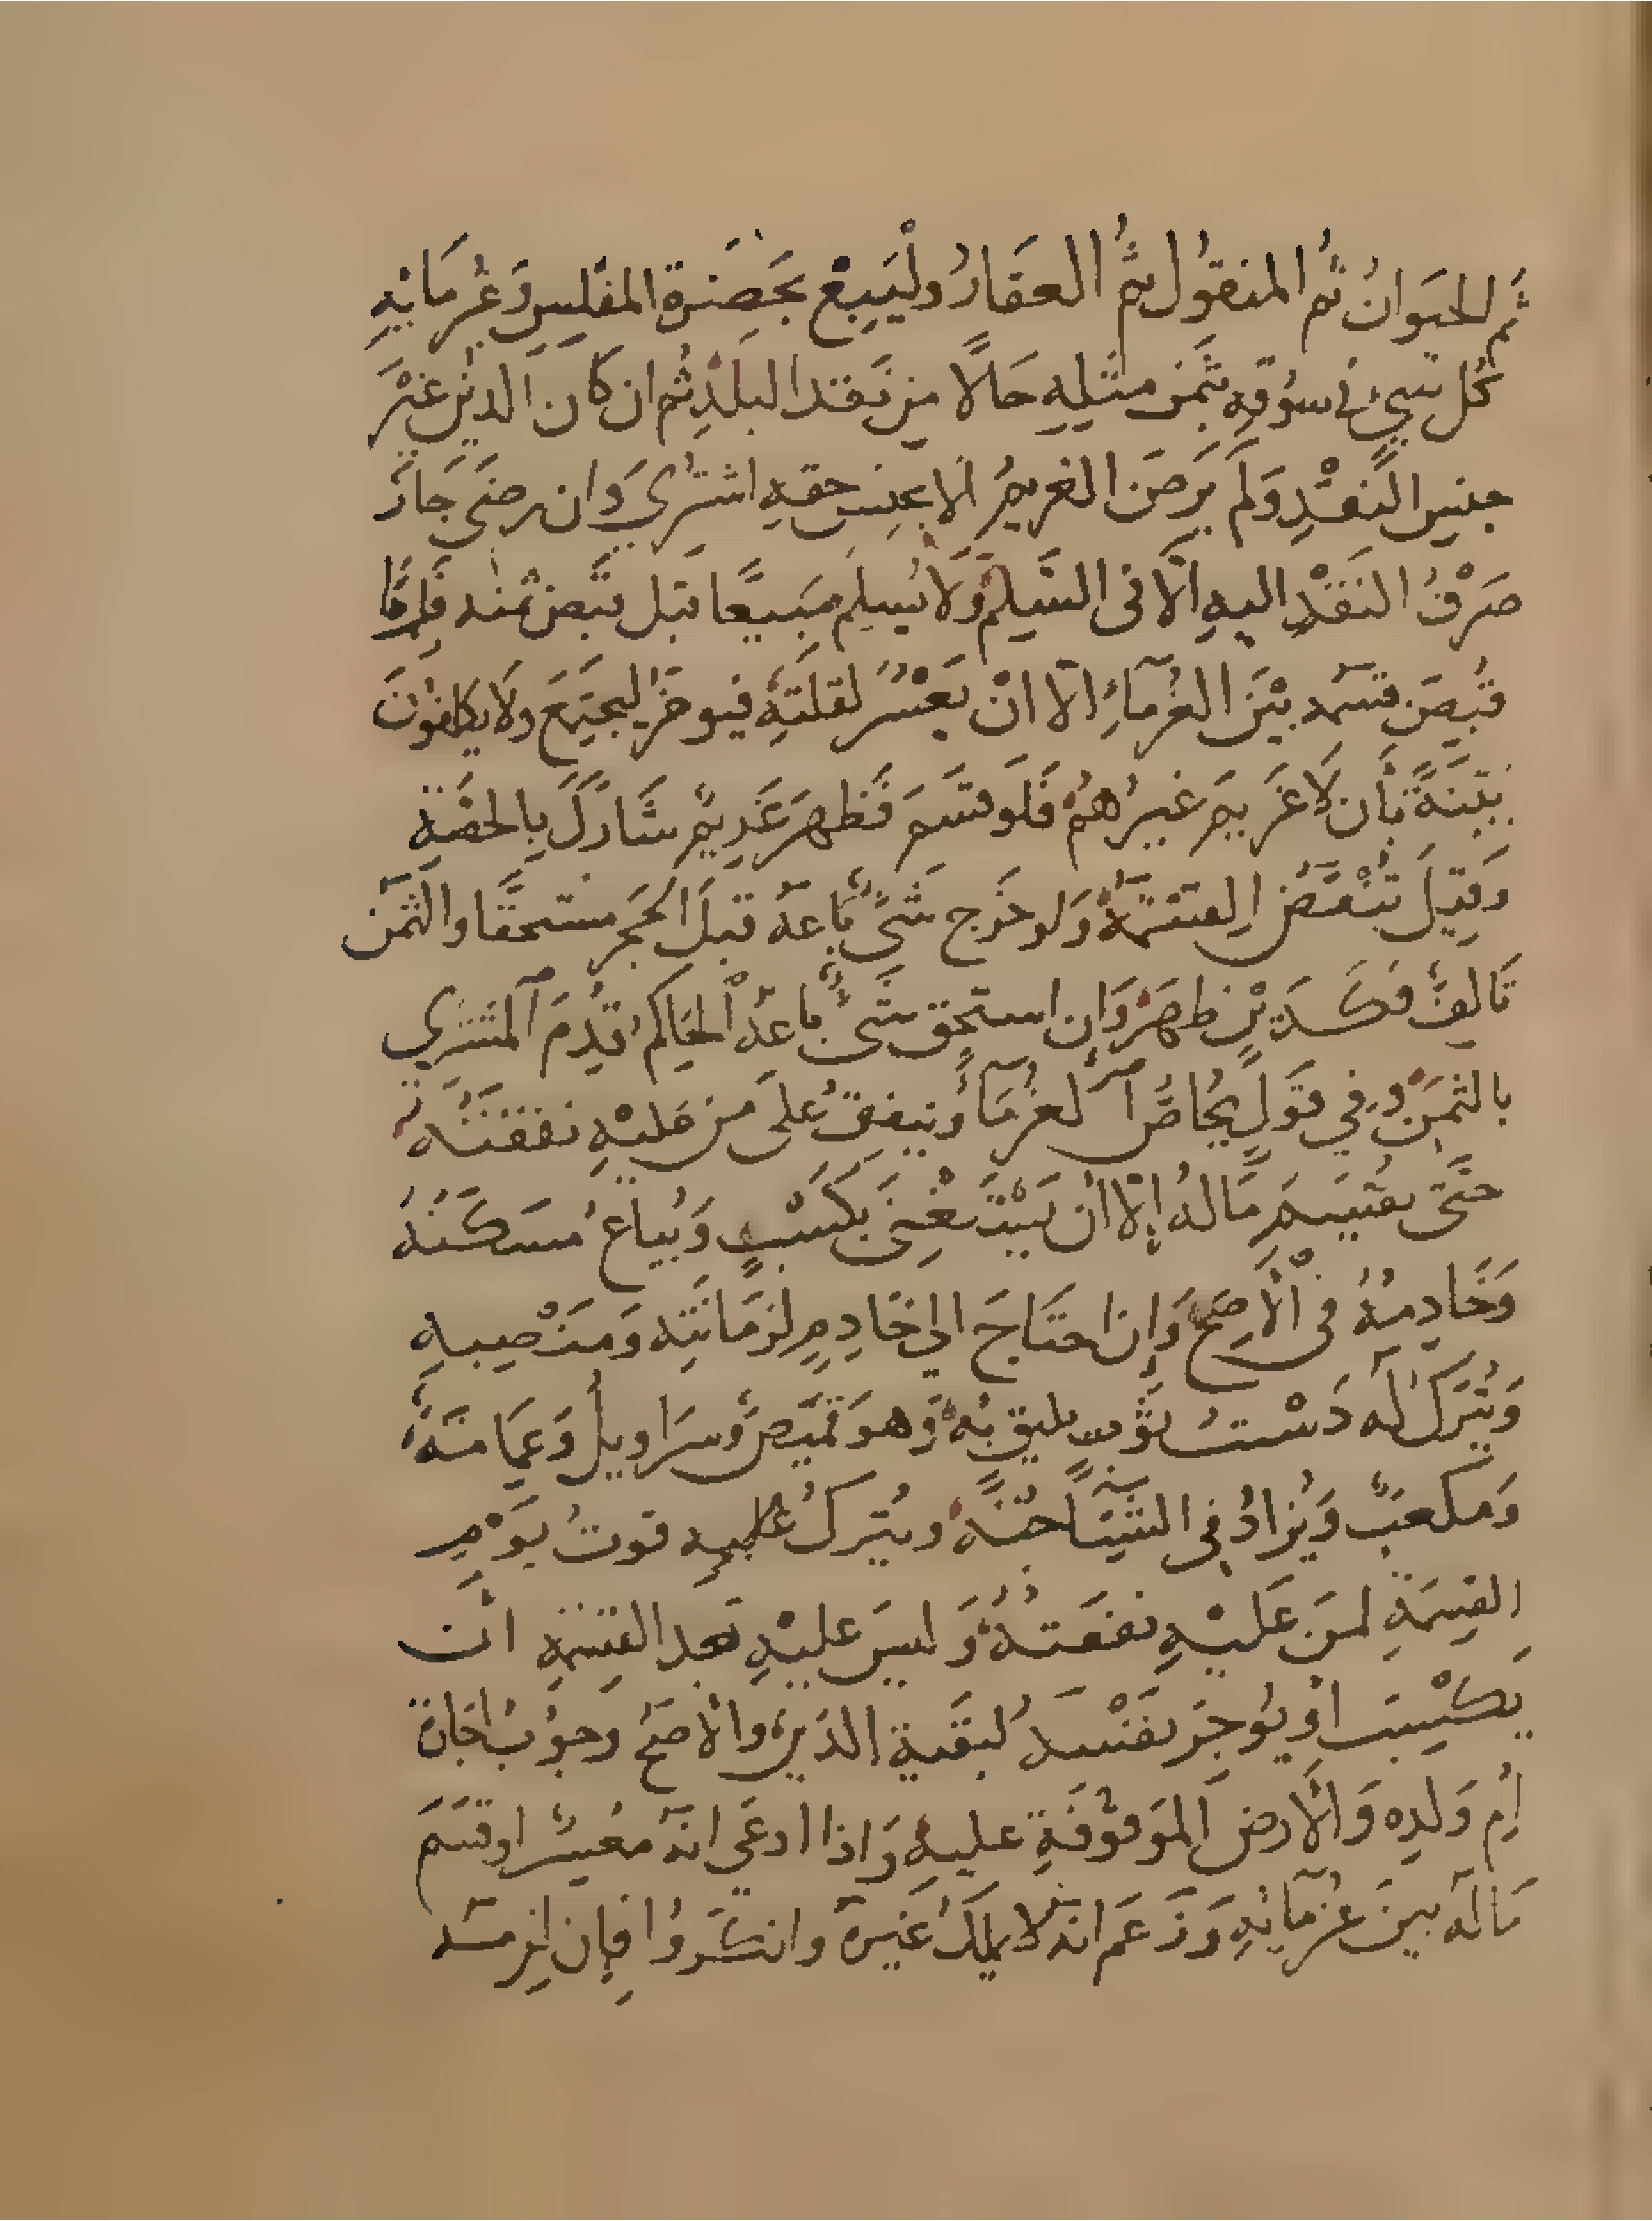 ثم الحَيَوانُ ثُم المنقوُل ثمُ العَقَارُ وليَبِعْ بحَضَرة المفْلِسِ وَغُرمَائهِ
كُل شيءٍ في سوُقهِ بثَمنِ مثلِهِ حَالاً مِن نَقد البلَدِ ثُم ان كان الدينُ غيْرَ
جنسِ النَقْدِ وَلَم يَرضَ الغريمُ الا بجنسِ حقهِ اشتُري وَان رضَى جازَ
صَرْفُ النقْدِ اليهِ الّا فى السَّلم وَلا يُسلِم مَبيعًا قبل قبض ثمنه وَمَا
قُبِضَ قسَمه بيْنَ الغُرمآءِ الّا انْ يَعْسُرَ لقلتهِ فيوخرُ ليجتَمعَ ولا يكلفوُنَ
بَيّنَةً بأن لاَ غَريمَ غيرُهُم فَلَو قسَمَ فَظهرَ غَريمٌ شَارَكَ بالحصّةِ
وَقيلَ تُنْقَضُ القسْمَةُ وَلو خَرج شَيٌ بَاعَهُ قبلَ الحَجرِ مستحقًا والثمَن
تَالِفٌ فكَدَينٍ ظهرَ وَإن استحق شَيٌ بَاعَهُ الحَاكمُ قُدِمَ المشتري
بالثمَن وفي قوَلٍ يُحَاصُّ الغُرمَآءَ وينفقُ عَلى مَن عَليْهِ نفقَتُهُ
حتَّى يقسِمَ مَالهُ إلّا أن يَسْتَغْنِيَ بكَسْبٍ وَيُباعُ مسَكَنهُ
وَخَادِمهُ فى الْأصَحّ وَإن احتَاجَ الي خَادِمٍ لزمَانتهِ وَمَنْصِبهِ
وَيُترَكُ لهُ دَسْتُ ثوْبٍ يليق بهِ وَهوَ قميصٌ وسَراويلُ وَعمَامَةٌ
وَمكعَبٌ وَيُزادُ في الشتَاءِ جبّةٌ ويُتركُ عليه قوتُ يَوْمِ
القِسْمَةِ لمن عَليْهِ نفقتُهُ وَليسَ عليْهِ بَعد القسْمَةِ أن
يَكسِبَ اوْ يوُجِرَ نفْسَهُ لبقَية الدَينِ والْأصَحُ وجوُبُ اجَارة
أم وَلدهِ وَالْأرض المَوقوُفَةِ عليهِ وَاذا ادعَى انّهُ معُسِرٌ او قسَمَ
مَالهُ بين غرمآئهِ وَزعَم انهُ لا يملكُ غَيرَهُ وانكَروُا فإن لزمَه